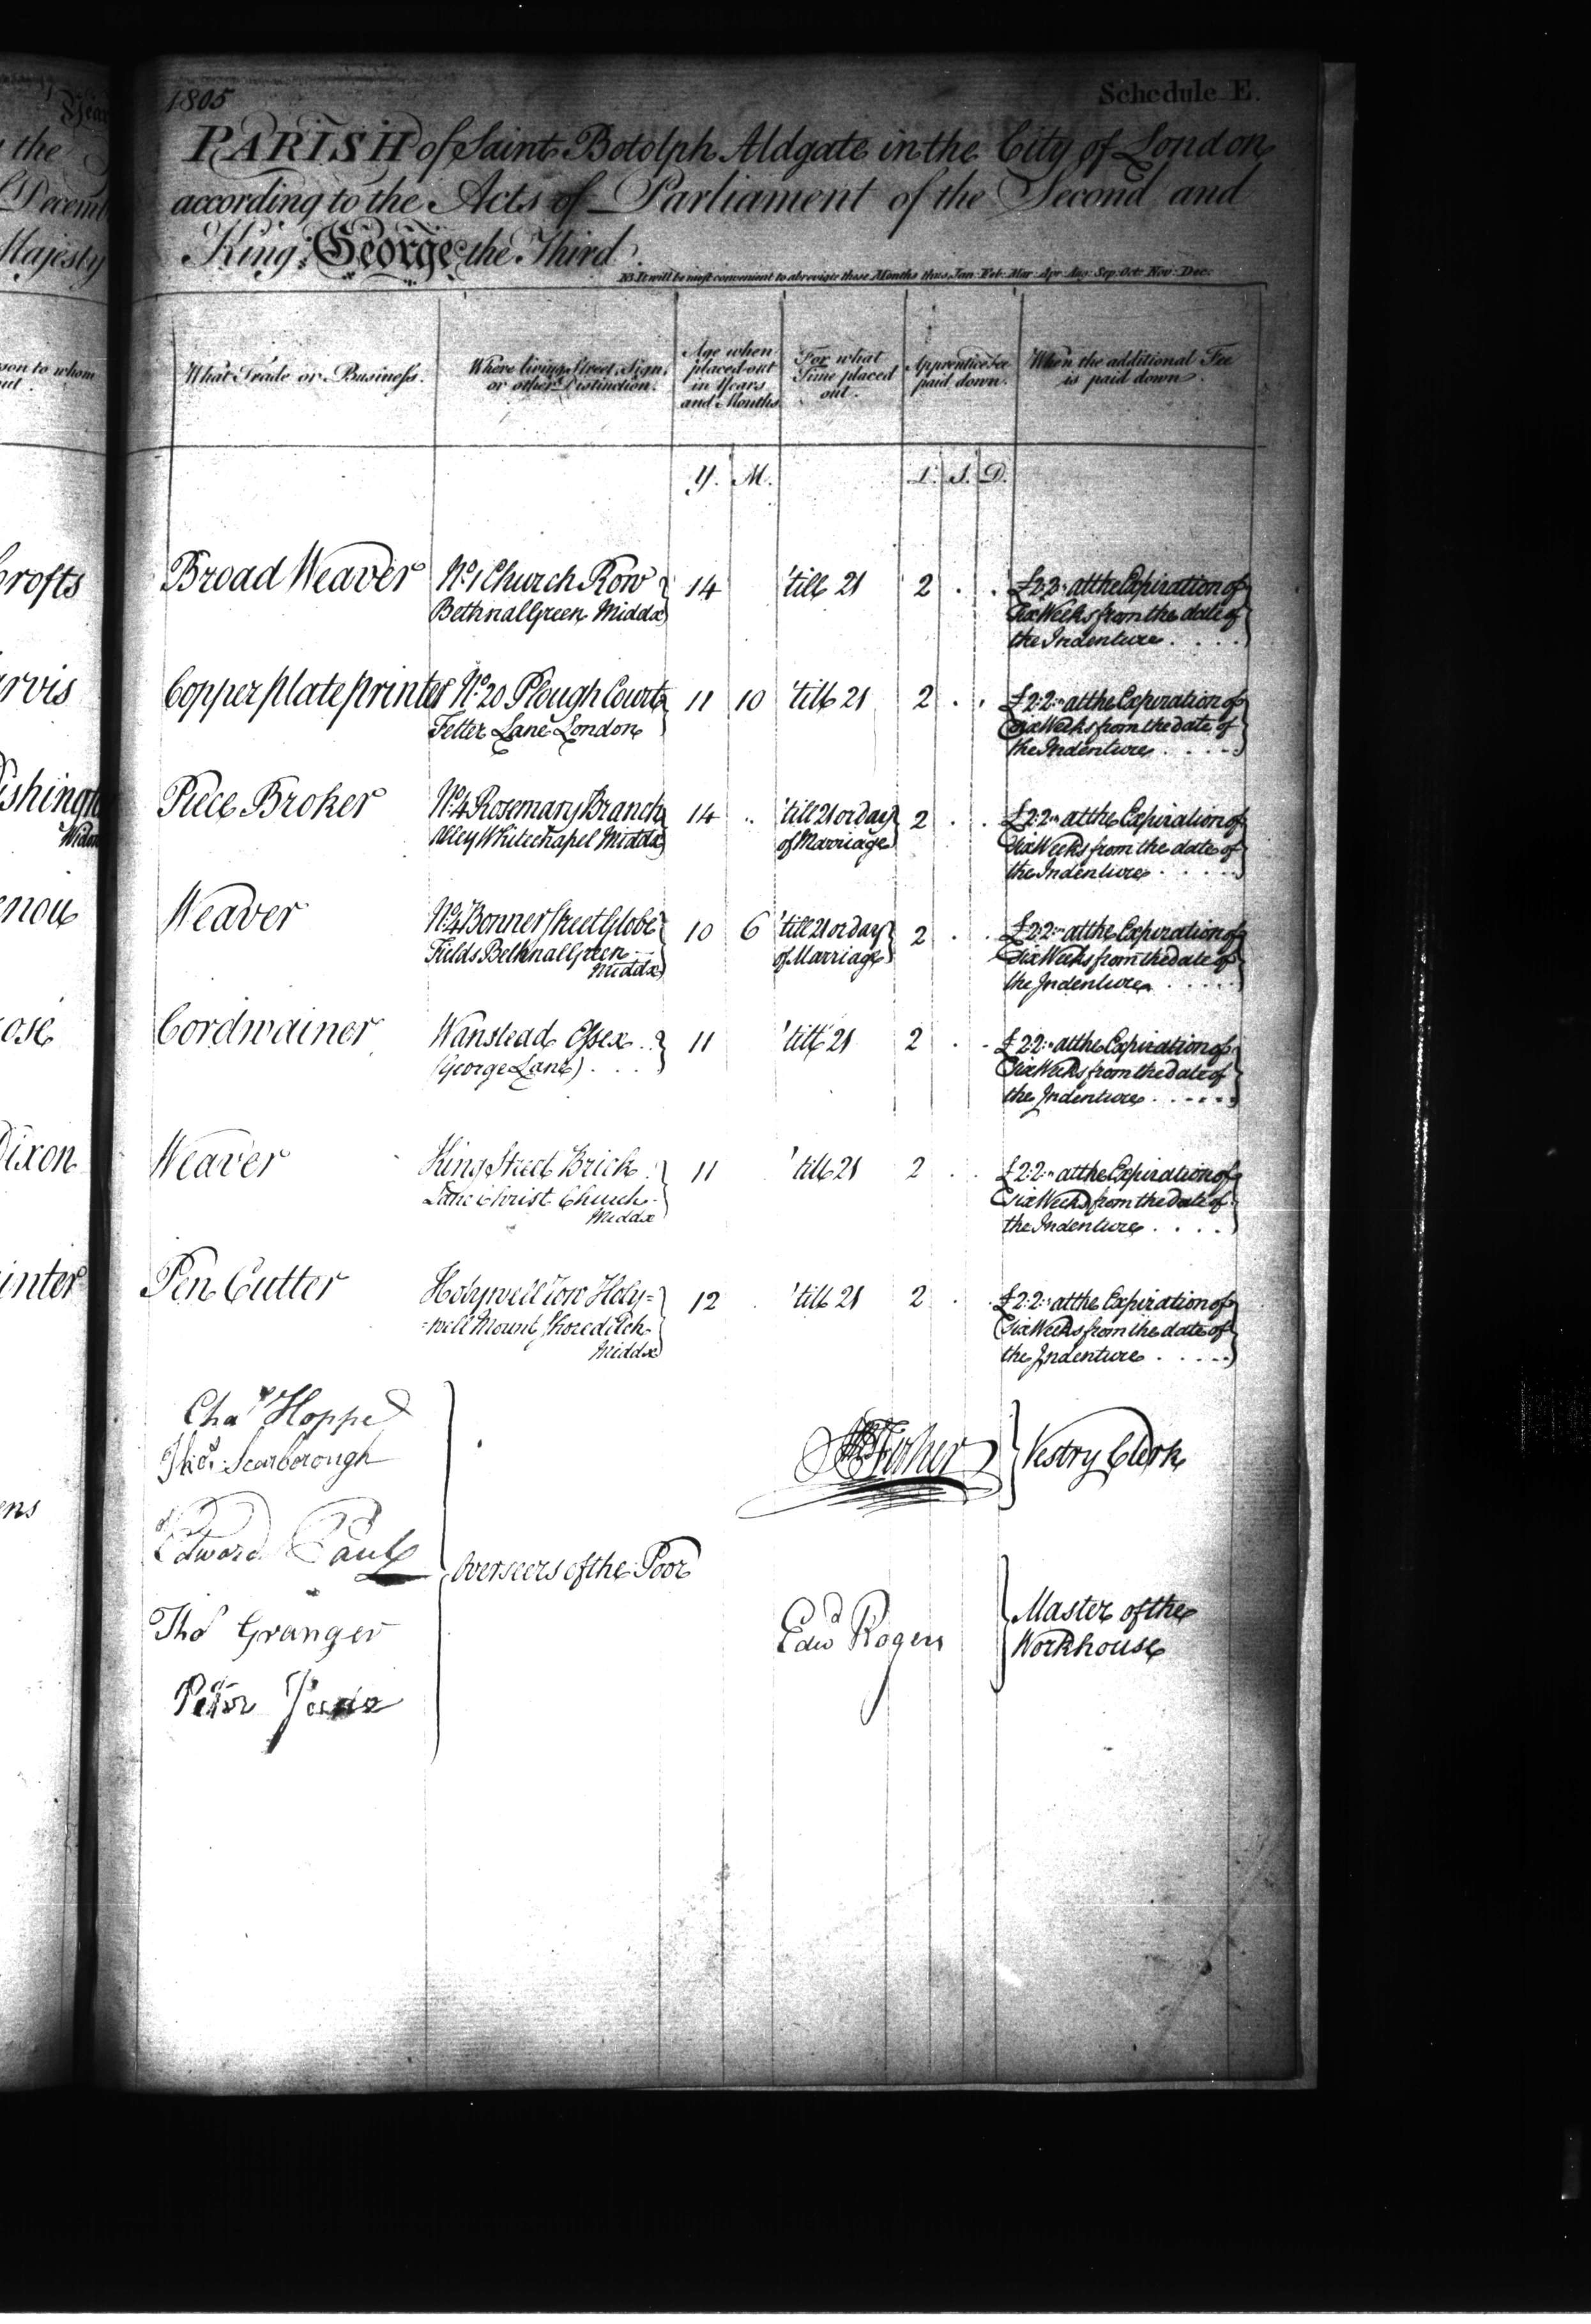 1805
Schedule E.
Year
PARISH of Saint Botolph Aldgate in the City of London
the
according to the Acts of Parliament of the Second and
Decemb
King George the Third.
Majesty
NB. It will be most convenient to abreviate these Months thus Jan: Feb: Mar: Apr: Aug: Sep: Oct: Nov: Dec:
son to whom
What Trade or Business.
Where living, Street, Sign,
or other Distinction.
Age when
placed out
in Years
and Months
For what
Time placed
out.
Apprentice fee
paid down.
When the additional Fee
is paid down.
Y. M. L. S. D.
Crofts Broad Weaver No. 1 Church Row 14 'till 21 2 . . £2:2:" at the Expiration of
Bethnal Green Middx Six Weeks from the date of
the Indenture . . . .
rvis Copper plate printer No. 20 Plough Court 11 10 'till 21 2 . . £2:2:" at the Expiration of
Fetter Lane London Six Weeks from the date of
the Indenture . . . .
ishington Piece Broker No. 4 Rosemary Branch 14 .. 'till 21 or day 2 . . £2:2:" at the Expiration of
Alley Whitechapel Middx of Marriage Six Weeks from the date of
Widow the Indenture . . . . .
enou Weaver No. 4 Bonner Street Globe 10 6 'till 21 or day 2 . . £2:2:" at the Expiration of
Fields Bethnal Green of Marriage Six Weeks from the date of
Middx the Indenture . . . . .
ose Cordwainer Wanstead Essex . . 11 'till 21 2 . . £2:2:" at the Expiration of
(George Lane) . . . Six Weeks from the date of
the Indenture . . . . .
Dixon Weaver King Street Brick 11 'till 21 2 . . £2:2:" at the Expiration of
Lane Christ Church Six Weeks from the date of
Middx the Indenture . . . .
inter Pen Cutter Holywell row Holy= 12 . 'till 21 2 . . £2:2:" at the Expiration of
=well Mount Shoreditch Six Weeks from the date of
Middx the Indenture . . . . .
Chas Hoppe
Thos. Scarborough
Fisher Vestry Clerk
ens
Edward Paul
Overseers of the Poor
Thos Granger
Edwd Rogers
Master of the
Workhouse
Peter